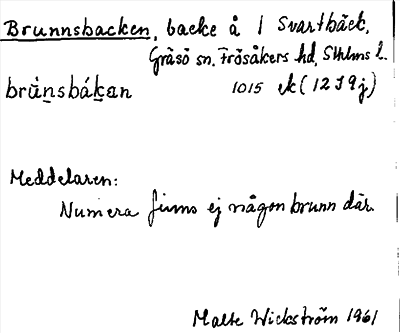 Brunnsbacken, backe å 1 Svartbäck,
Gräsö sn. Frösåkers hd, Sthlms l.
brùṉsbáḵan 1015 ek (12 I 9 j)
Meddelaren:
Numera finns ej någon brunn där.
Malte Wickström 1961